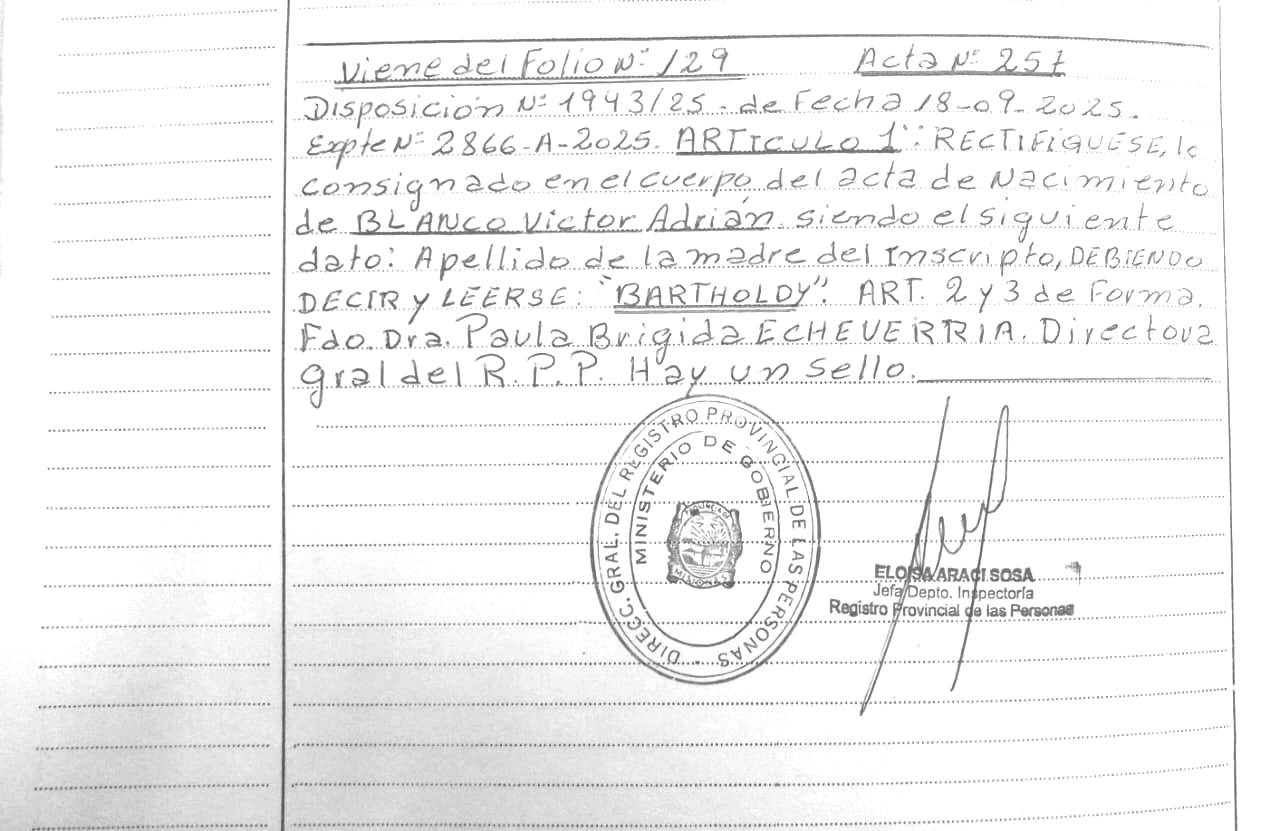 Viene del Folio Nº 129 Acta Nº 257
Disposición Nº 1943/25 - de Fecha 18-09-2025.
Expte Nº 2866-A-2025. ARTICULO 1º: RECTIFÍQUESE, lo
consignado en el cuerpo del acta de Nacimiento
de BLANCO Victor Adrián, siendo el siguiente
dato: Apellido de la madre del Inscripto, DEBIENDO
DECIR y LEERSE: "BARTHOLDY". ART. 2 y 3 de Forma.
Fdo. Dra. Paula Brigida ECHEVERRIA. Directora
Gral del R. P. P. Hay un sello.
DIRECC. GRAL. DEL REGISTRO PROVINCIAL DE LAS PERSONAS
MINISTERIO DE GOBIERNO
PROVINCIA
MISIONES
ELOISA ARACI SOSA
Jefa Depto. Inspectoría
Registro Provincial de las Personas